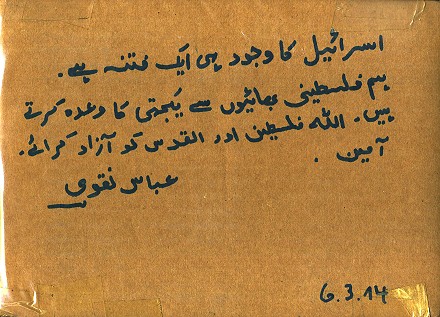 اسرائیل کا وجود ہی ایک فتنہ ہے۔
ہم فلسطینی بھائیوں سے یکجتی کا وعدہ کرتے
ہیں۔ اللہ فلسطین اور القدس کو آزاد کرائے۔
آمین۔
عباس نقوی
6.3.14